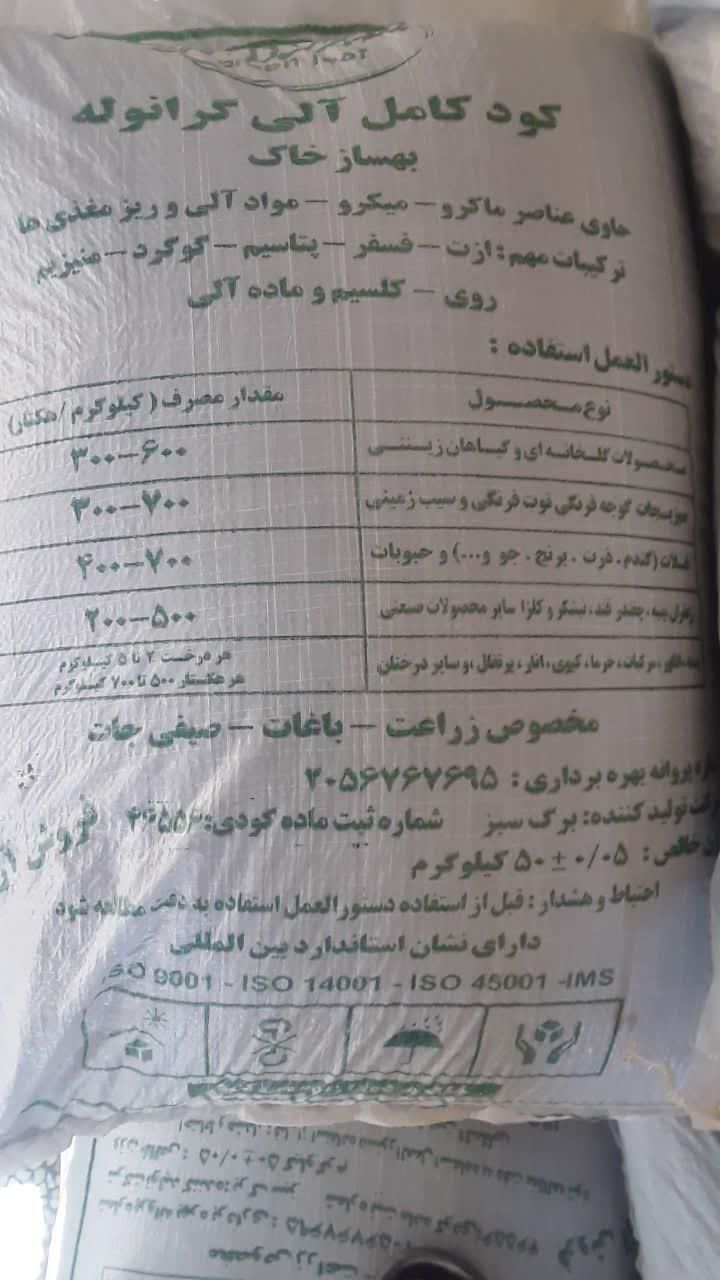 کود کامل آلی گرانوله
بهساز خاک
حاوی عناصر ماکرو – میکرو – مواد آلی و ریز مغذی ها
ترکیبات مهم : ازت – فسفر – پتاسیم – گوگرد – منیزیم
روی – کلسیم و ماده آلی
دستور العمل استفاده :
نوع محصول مقدار مصرف ( کیلوگرم / هکتار)
محصولات گلخانه ای و گیاهان زینتی ۳۰۰–۶۰۰
سبزیجات گوجه فرنگی توت فرنگی و سیب زمینی ۳۰۰–۷۰۰
غلات (گندم . ذرت . برنج . جو و...) و حبوبات ۴۰۰–۷۰۰
زعفران پنبه، چغندر قند، نیشکر و کلزا سایر محصولات صنعتی ۲۰۰–۵۰۰
مرکبات، خرما، کیوی، انار، پرتقال ،و سایر درختان هر درخت ۲ تا ۵ کیلوگرم
هر هکتار ۵۰۰ تا ۷۰۰ کیلوگرم
مخصوص زراعت – باغات – صیفی جات
پروانه بهره برداری : ۲۰۵۶۷۶۷۶۹۵
تولید کننده: برگ سبز شماره ثبت ماده کودی: ۴۶۵۵۶
خالص : ۰/۰۵ ± ۵۰ کیلوگرم
فروش
احتیاط و هشدار : قبل از استفاده دستور العمل استفاده به دقت مطالعه شود
دارای نشان استاندارد بین المللی
ISO 9001 - ISO 14001 - ISO 45001 -IMS